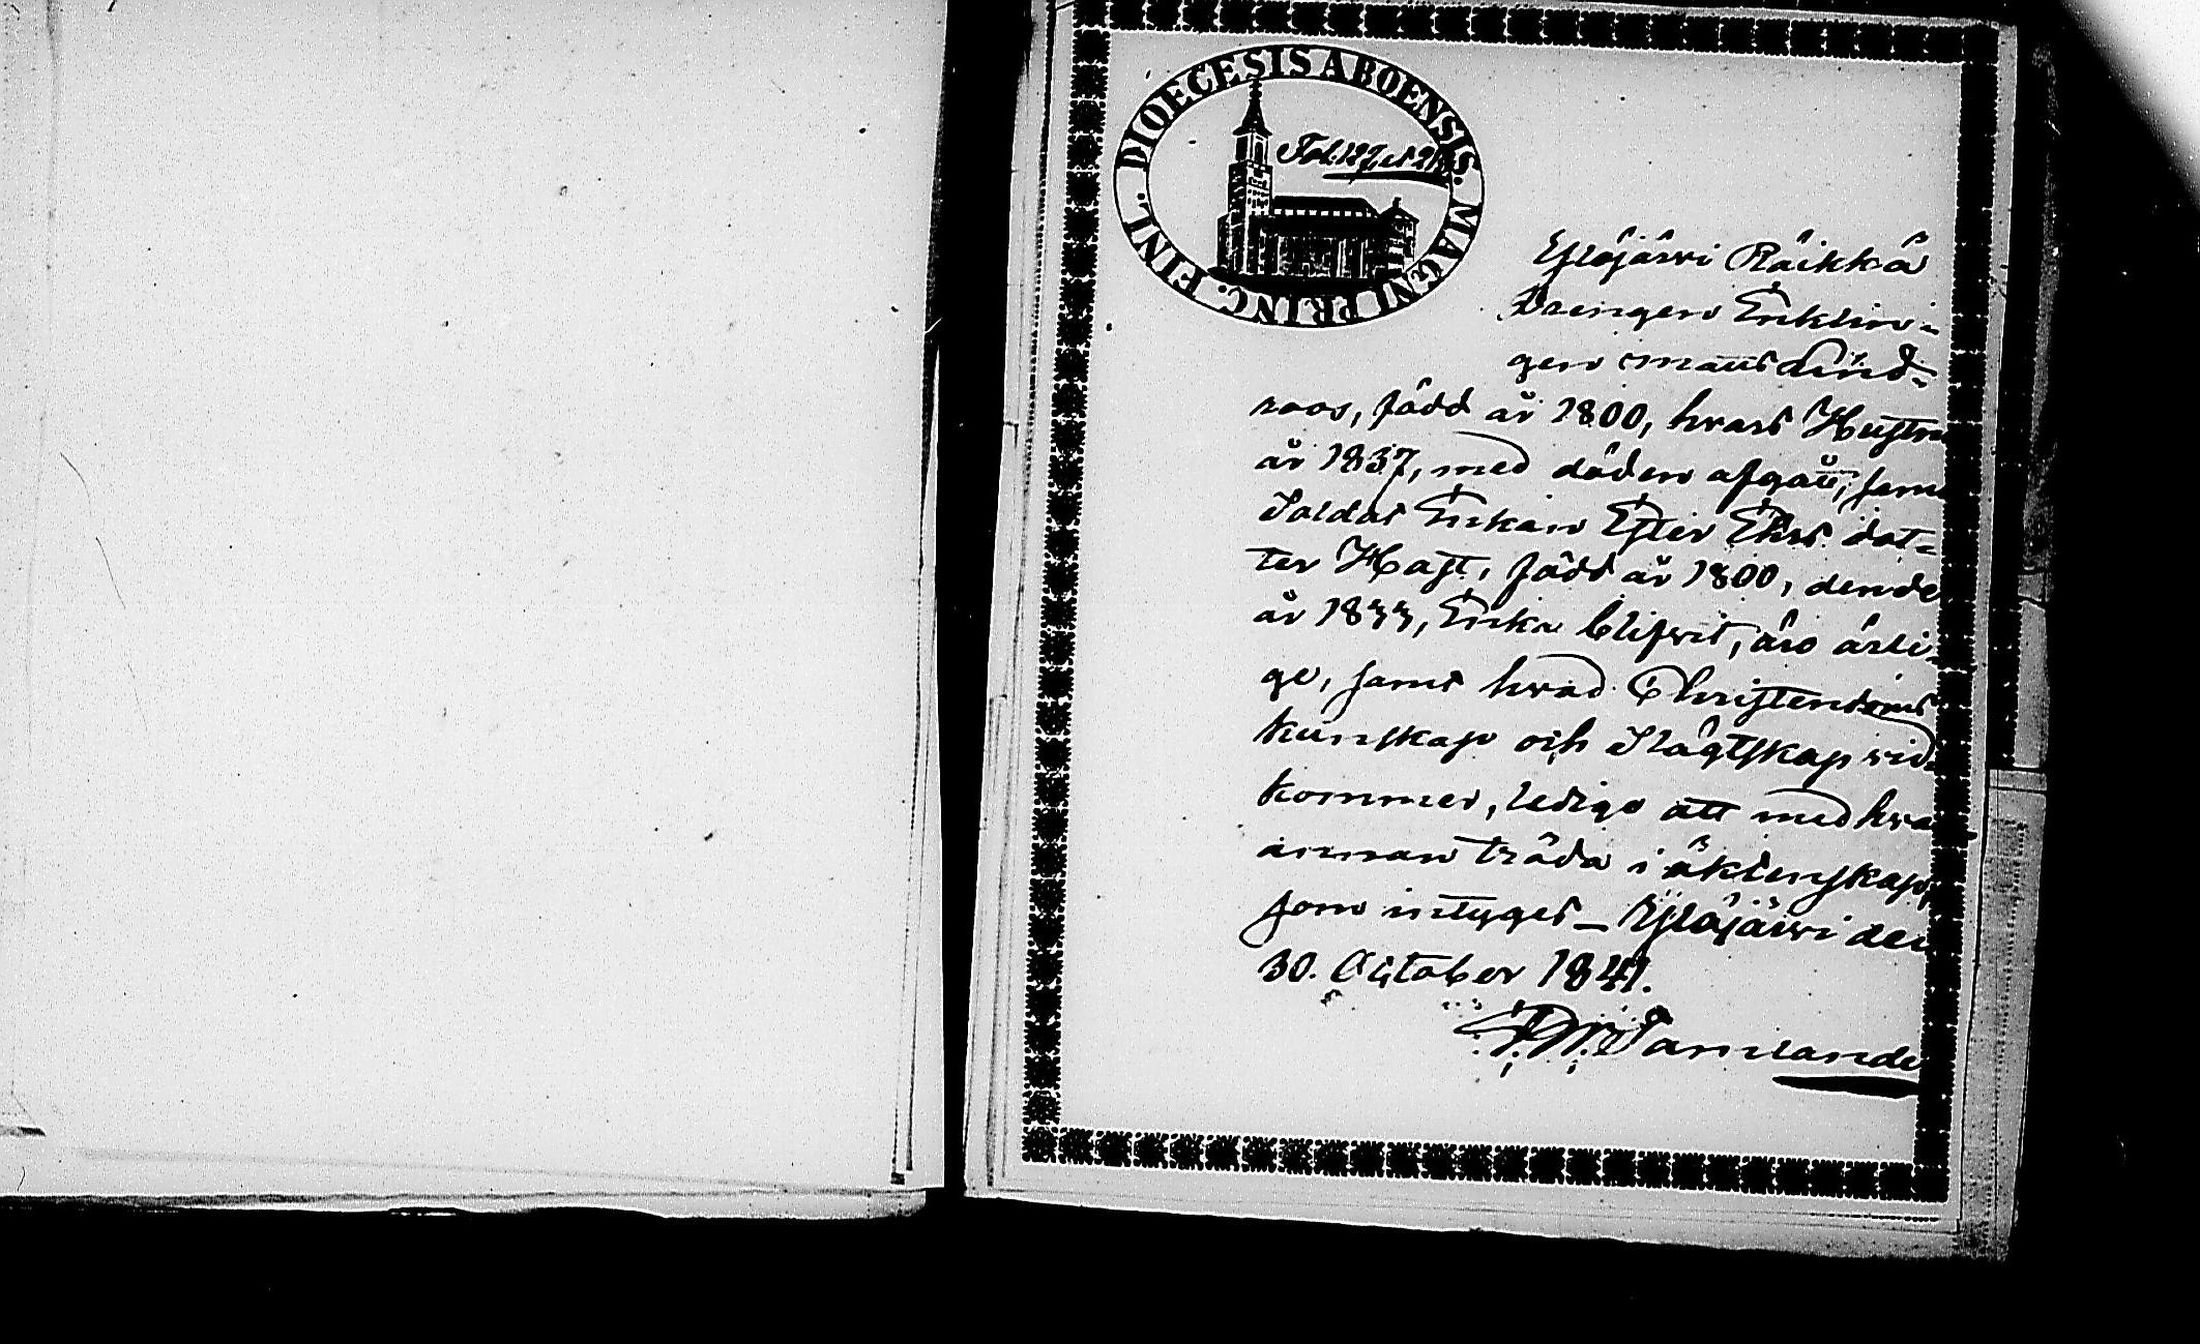 DIOECESIS ABOENSIS. MAGNI PRINC. FINL.
Fol. 127, et
Ylöjärvi Räikkä
Drengen Enklin-
gen Matts Lind-
roos, född år 1800, hvars Hustru
år 1837, med döden afgått, samt
Soldat Enkan Ester Eliæ dot-
ter Hast, född år 1800, den de
år 1833, Enka blifvit, äro ärli-
ge, samt hvad Christendoms
kunskap och Slägtskap vid-
kommer, lediga att med hvar
annan träda i äktenskap,
som intyges _ Ylöjärvi den
30. October 1841.
Tamlander